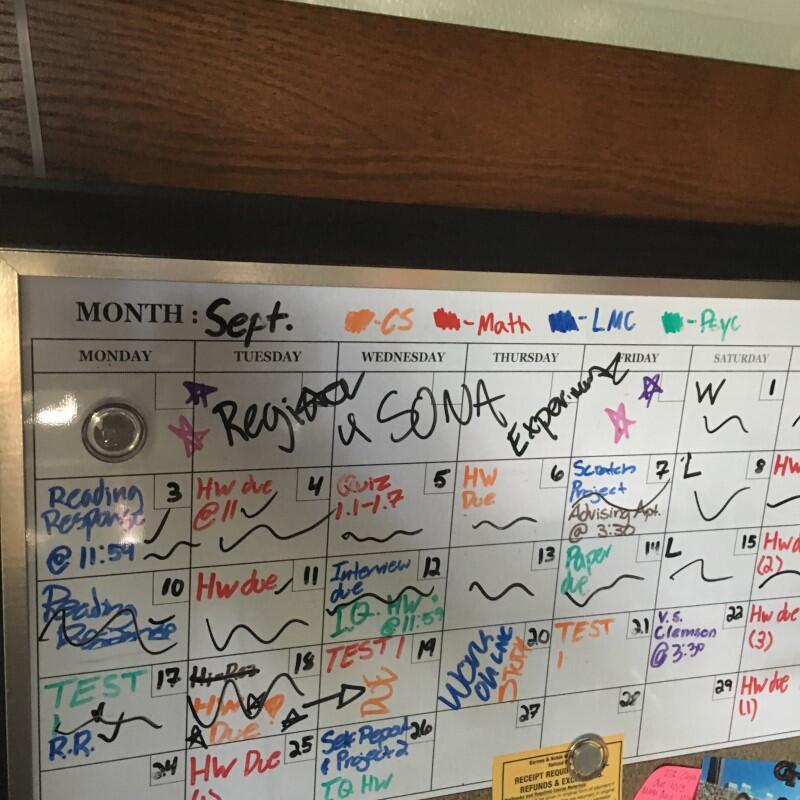 MONTH : Sept. -CS -Math -LMC -Psyc
MONDAY TUESDAY WEDNESDAY THURSDAY FRIDAY SATURDAY
Register SONA Experiment
W 1
Reading
Response
@ 11:59
3
Hw due
@ 11
4
Quiz
1.1-1.7
5
HW
Due
6
Scratch
Project
Advising Apt.
@ 3:30
7
L 8
Hw
Reading
Response
10
Hw due
11
Interview
due
I.Q. HW
@ 11:59
12
13
Paper
due
14
L 15
Hw
(2)
TEST
1
R.R.
17
HW
Due
18
TEST 1
DUE
19
Work
on LMC
STUDY
20
TEST
1
21
V.S.
Clemson
@ 3:30
22
Hw due
(3)
24
HW Due
25
Self Report
& Project 2
IQ HW
26
27
28
29
Hw due
(1)
RECEIPT REQUIRED